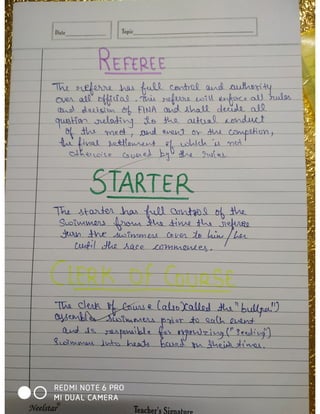 Date
Topic
REFEREE
The referre has full control and authority
over all official. This referre will enforce all rules
and decision of FINA and shall decide all
question relating to the actual conduct
of the meet, and event or the competion,
the final settlement of which is not
otherwise covered by the rules
STARTER
The starter has full control of the
swimmers from the time the referee
turn the swimmers over to him/her
until the race commences.
Clerk Of Course
The clerk of course (also) called the "bullpen")
assembles swimmers prior to each event
and is responsible for organizing ("Seeding")
Swimmers into heats based on their times.
REDMI NOTE 6 PRO
MI DUAL CAMERA
Neelstar
Teacher's Signature